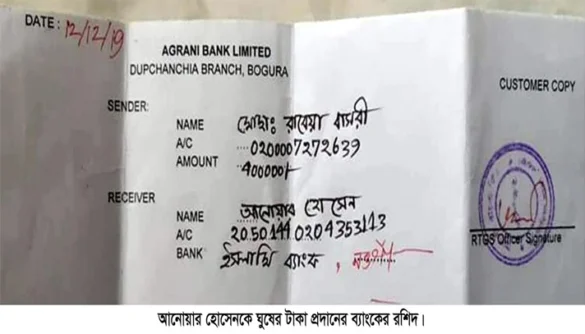 DATE: 12/12/19
AGRANI BANK LIMITED
DUPCHANCHIA BRANCH, BOGURA
CUSTOMER COPY
SENDER:
NAME মোছাঃ রাবেয়া বাসরী
A/C 0200007272639
AMOUNT 400000/-
RECEIVER
NAME আনোয়ার হোসেন
A/C 20501440204353113
BANK ইসলামি ব্যাংক,
RTGS Officer Signature
আনোয়ার হোসেনকে ঘুষের টাকা প্রদানের ব্যাংকের রশিদ।